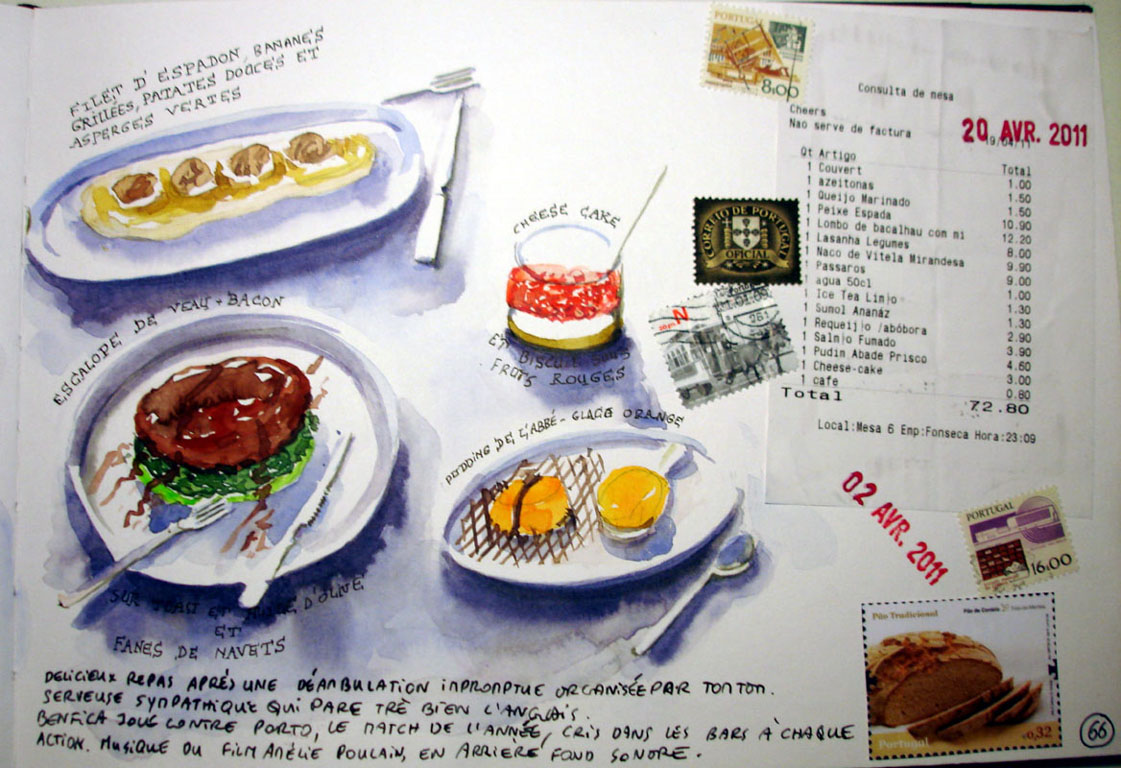 FILET D'ESPADON, BANANES
GRILLÉES, PATATES DOUCES ET
ASPERGES VERTES
CHEESE CAKE
ET BISCUIT SOUS
FRUITS ROUGES
ESCALOPE DE VEAU + BACON
SUR TOAST ET HUILE D'OLIVE
ET
FANES DE NAVETS
PUDDING DE L'ABBÉ - GLACE ORANGE
DELICIEUX REPAS APRÉS UNE DÉAMBULATION INPROMPTUE ORGANISÉE PAR TONTON.
SERVEUSE SYMPATHIQUE QUI PARE TRÈ BIEN L'ANGLAIS.
BENFICA JOUE CONTRE PORTO, LE MATCH DE L'ANNÉE, CRIS DANS LES BARS À CHAQUE
ACTION. MUSIQUE DU FILM AMÉLIE POULAIN, EN ARRIERE FOND SONORE.
PORTUGAL
8.00
Consulta de mesa
Cheers
Nao serve de factura
19/04/11
20 AVR. 2011
Qt Artigo Total
1 Couvert 1.00
1 azeitonas 1.50
1 Queijo Marinado 1.50
1 Peixe Espada 10.90
1 Lombo de bacalhau com mi 12.20
1 Lasanha Legumes 8.00
1 Naco de Vitela Mirandesa 9.90
1 Passaros 9.00
1 agua 50cl 1.00
1 Ice Tea Lim)o 1.30
1 Sumol Ananáz 1.30
1 Requeij)o /abóbora 2.90
1 Salm)o Fumado 3.90
1 Pudim Abade Prisco 4.60
1 Cheese-cake 3.00
1 cafe 0.80
Total 72.80
Local:Mesa 6 Emp:Fonseca Hora:23:09
CORREIO DE PORTUGAL
OFICIAL
N
02 AVR. 2011
PORTUGAL
16.00
Pão Tradicional
Portugal
€0,32
66